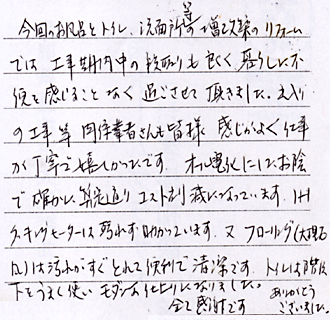 今回のお風呂とトイレ、洗面所等の増改築のリフォーム
では工事期間中の段取りも良く、暮らしに不
便を感じることなく過ごさせて頂きました。出入り
の工事等 関係業者さんも皆様 感じがよく仕事
が丁寧で嬉しかったです。オール電化にしたお陰
で確かに予定通りコスト削減になっています。IH
クッキングヒーターは汚れず助かっています。又フローリング(大理石
は汚れがすぐとれて便利で清潔です。トイレは階段
下をうまく使いモダンな仕上りになりました。
全て感謝です ありがとう
ございました。